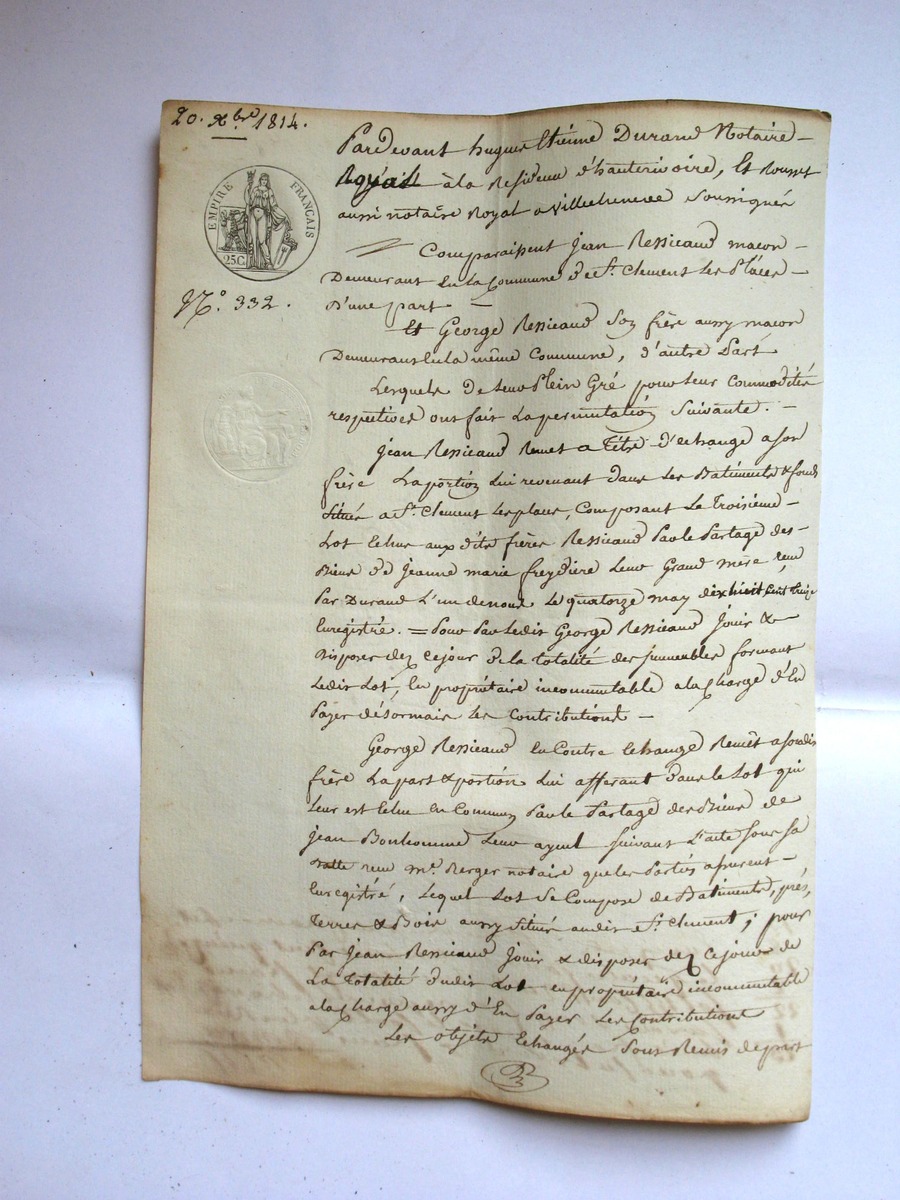 20. Xbre 1814.
EMPIRE FRANÇAIS
25C
N.° 332.
Pardevant hugues Etienne Durand Notaire
Royal à la Residence d'hauterivoire, Et Rousset
aussi notaire Royal a Villecheneve Soussignés
Comparaissent jean Ressicaud macon
Demeurant En La Commune de St. Clement Les Places
D'une part
Et George Ressicaud Son frère aussy macon
Demeurant En la même Commune, d'autre Part
Lesquels de leur Plein Gré pour leur commodités
respectives ont fait La permutation Suivante.
jean Ressicaud Remet a titre d'echange a son
frère La portion Lui revenant dans Les Batiments & fonds
Situés a St. Clement Les places, Composant Le Troisième
Lot Echus aux dits frères Ressicaud Par Le Partage des
Biens de Jeanne marie freydiere Leur Grand mère reçu
Par Durand L'un de nous Le quatorze may dix huit cent
Enregistré. = Pour Par Ledit George Ressicaud Jouir &
Disposer dez ce jour de la totalité des jmmeubles formant
Ledit Lot, En propriétaire incommutable a la Charge d'En
Payer désormais Les Contributions
George Ressicaud En Contre Echange Remet a son dit
frère La part & portion Lui afferant dans le Lot qui
Leur est Echu En Commun Par le Partage des Biens de
jean Bonhomme Leur ayeul suivant L'acte sous sa
Datte reçu me. Berger notaire que les Parties assurent
Enregistré, Lequel Lot Se Compose de Batiments, prés,
Terres & Bois aussy Situés audit St. Clement; pour
Par jean Ressicaud Jouir & disposer dez Ce jour de
La Totalité dudit Lot en propriétaire incommutable
a la Charge aussy d'En Payer Les Contributions
Les objets Echangés Sont Remis de part